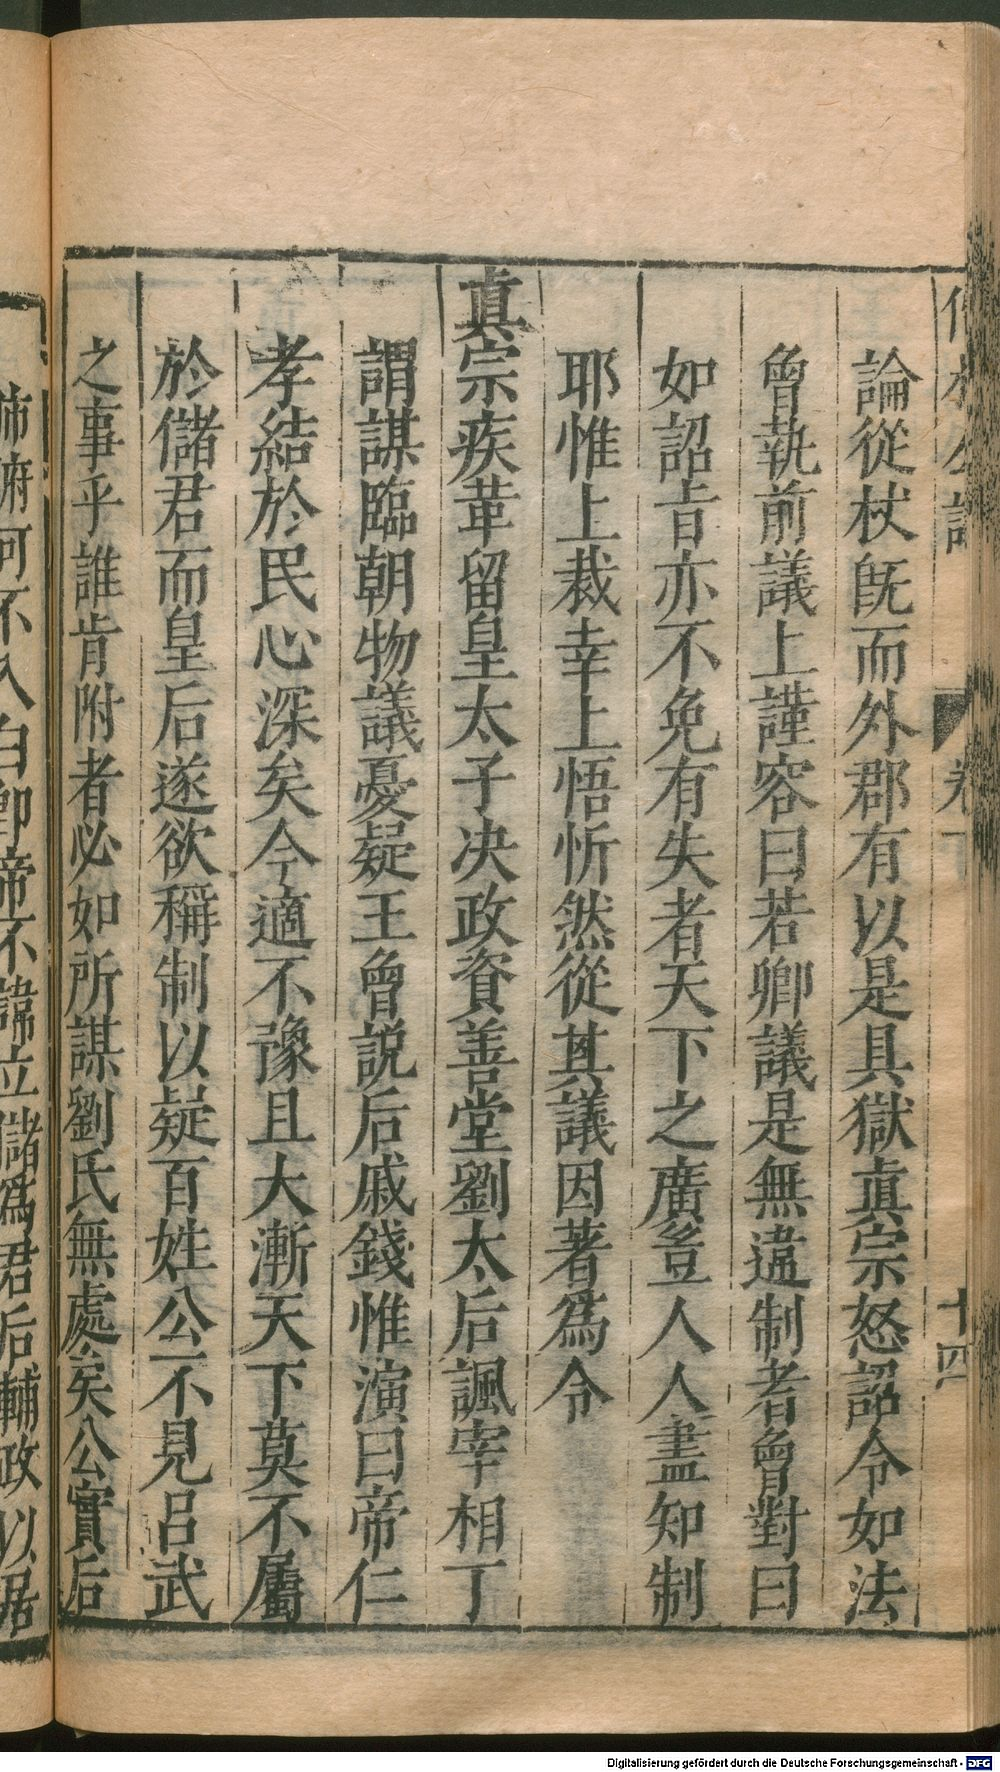 論從杖旣而外郡有以是具獄眞宗怒詔令如法
曾執前議上謹容曰若卿議是無違制者曾對曰
如詔旨亦不免有失者天下之廣豈人人盡知制
耶惟上裁幸上悟忻然從其議因著爲令
真宗疾革留皇太子决政資善堂劉太后諷宰相丁
謂謀臨朝物議憂疑王曾説后戚錢惟演曰帝仁
孝結於民心深矣今適不豫且大漸天下莫不屬
於儲君而皇后遂欲稱制以疑百姓公不見呂武
之事乎誰肯附者必如所謀劉氏無處矣公實后
肺腑何不入白卽帝不諱立儲爲君后輔政以居
卷下
十四
Digitalisierung gefördert durch die Deutsche Forschungsgemeinschaft - DFG